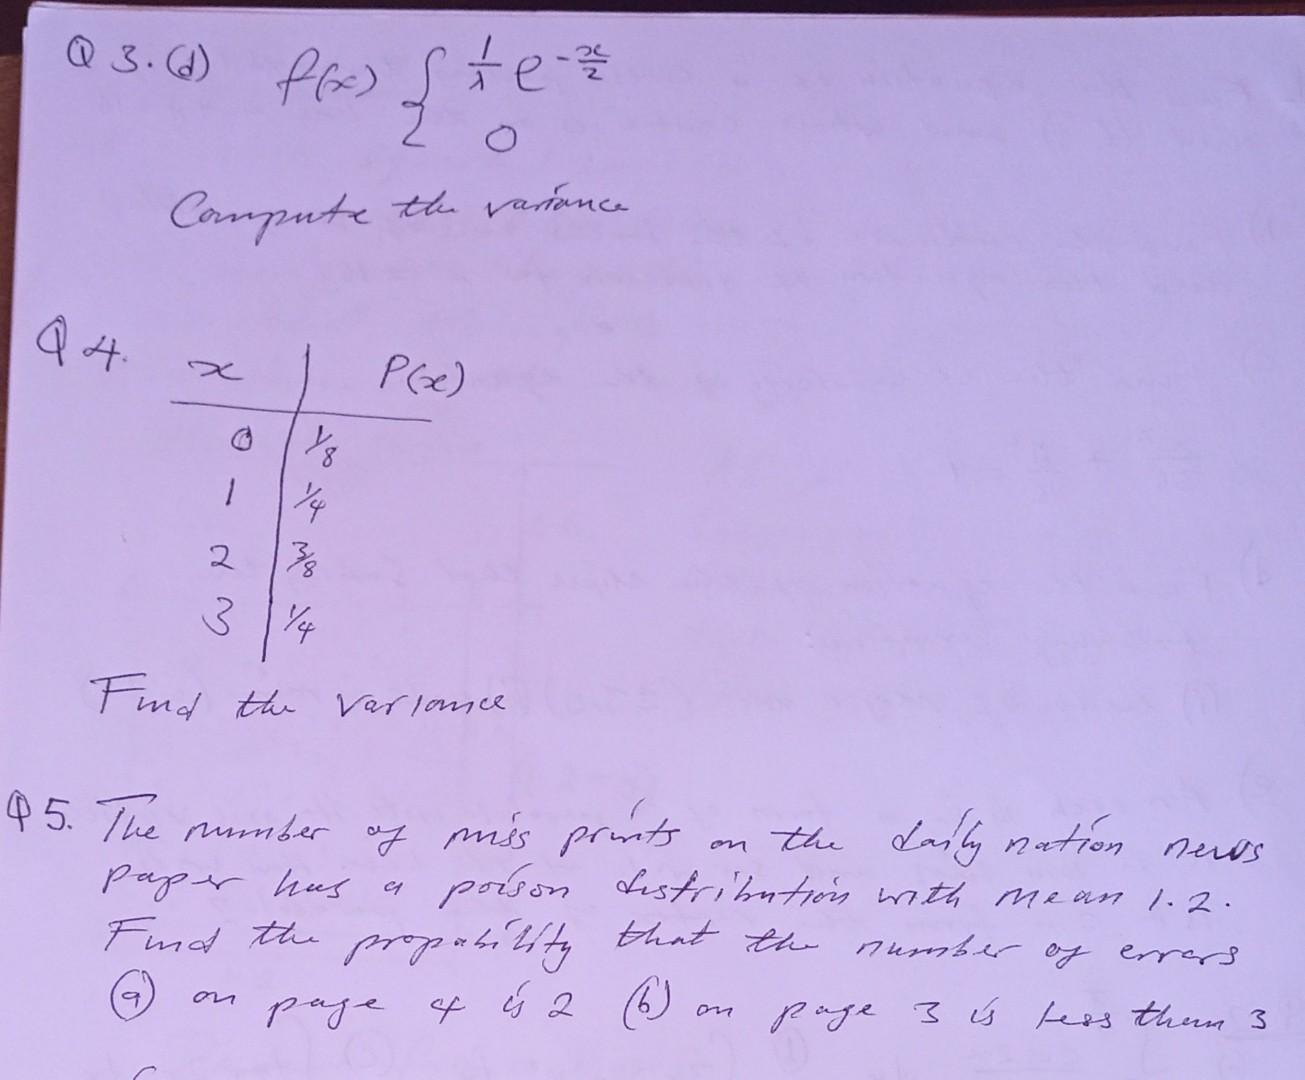 Q 3. (d) f(x) { 1/λ e^-x/2
0
Compute the variance
Q 4. x | P(x)
0 | 1/8
1 | 1/4
2 | 3/8
3 | 1/4
Find the variance
Q 5. The number of miss prints on the daily nation news
paper has a poison distribution with mean 1.2.
Find the propability that the number of errors
(a) on page 4 is 2 (b) on page 3 is less than 3